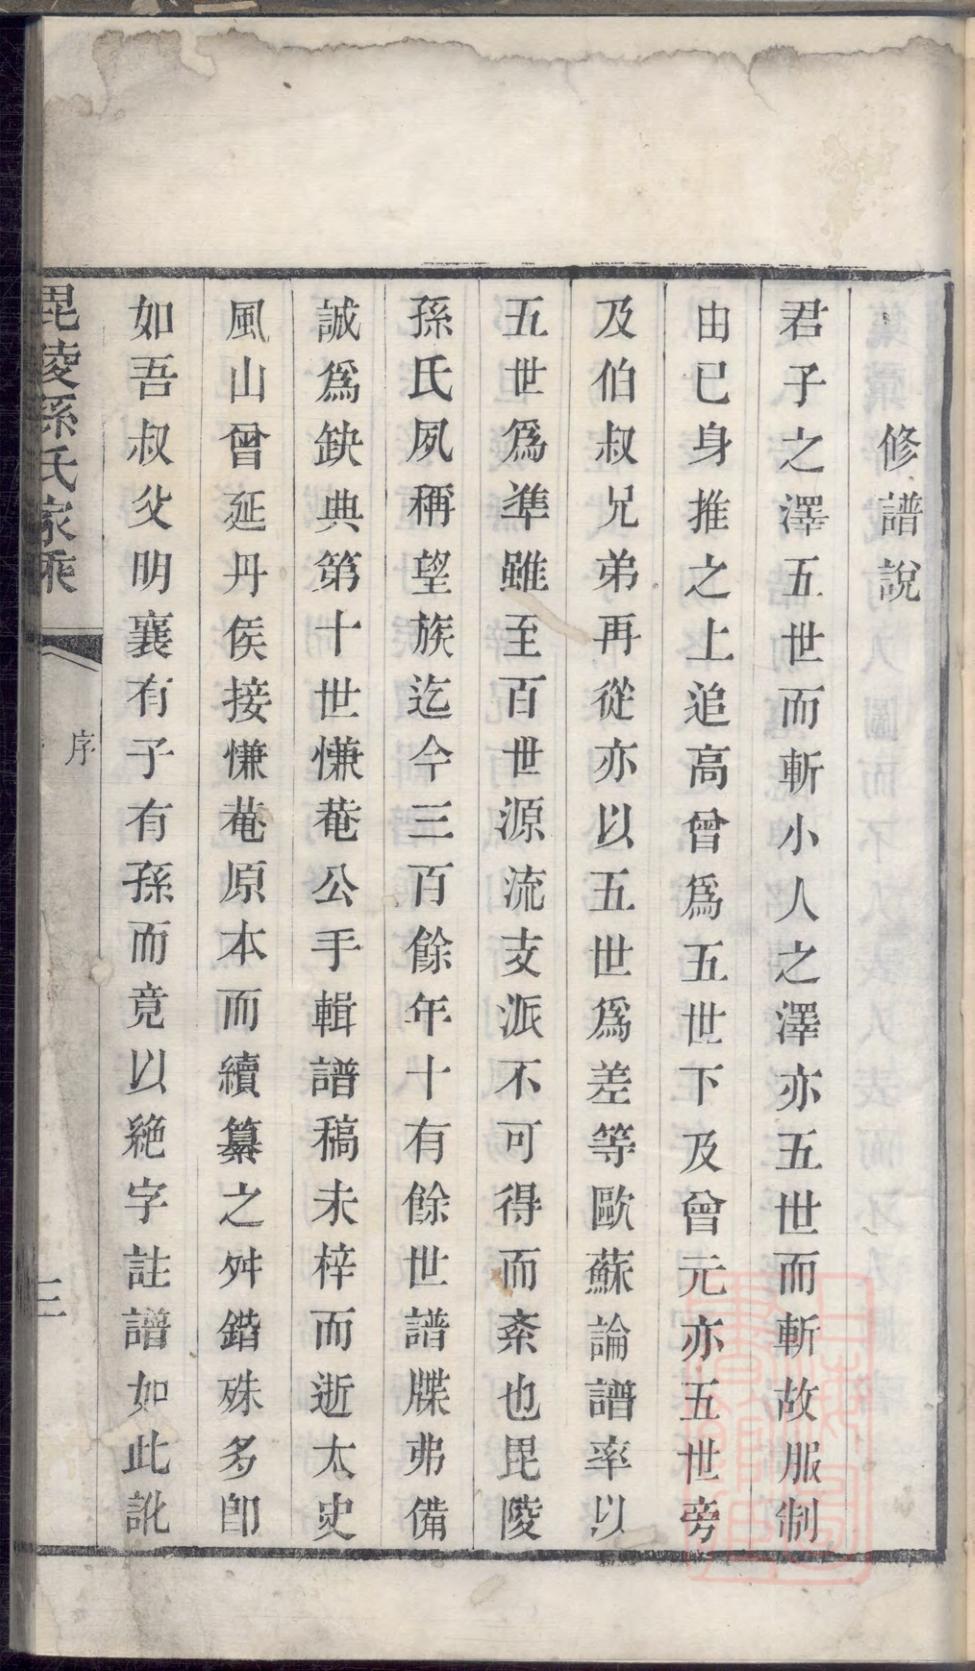 修譜說
君子之澤五世而斬小人之澤亦五世而斬故服制
由已身推之上追高曾爲五世下及曾元亦五世旁
及伯叔兄弟再從亦以五世爲差等歐蘇論譜率以
五世爲準雖至百世源流支派不可得而紊也毘陵
孫氏夙稱望族迄今三百餘年十有餘世譜牒弗備
誠爲缺典第十世慊菴公手輯譜稿未梓而逝太史
風山曾延丹侯接慊菴原本而續纂之舛錯殊多卽
如吾叔父明襄有子有孫而竟以絶字註譜如此訛
毘陵孫氏家乘
序
三